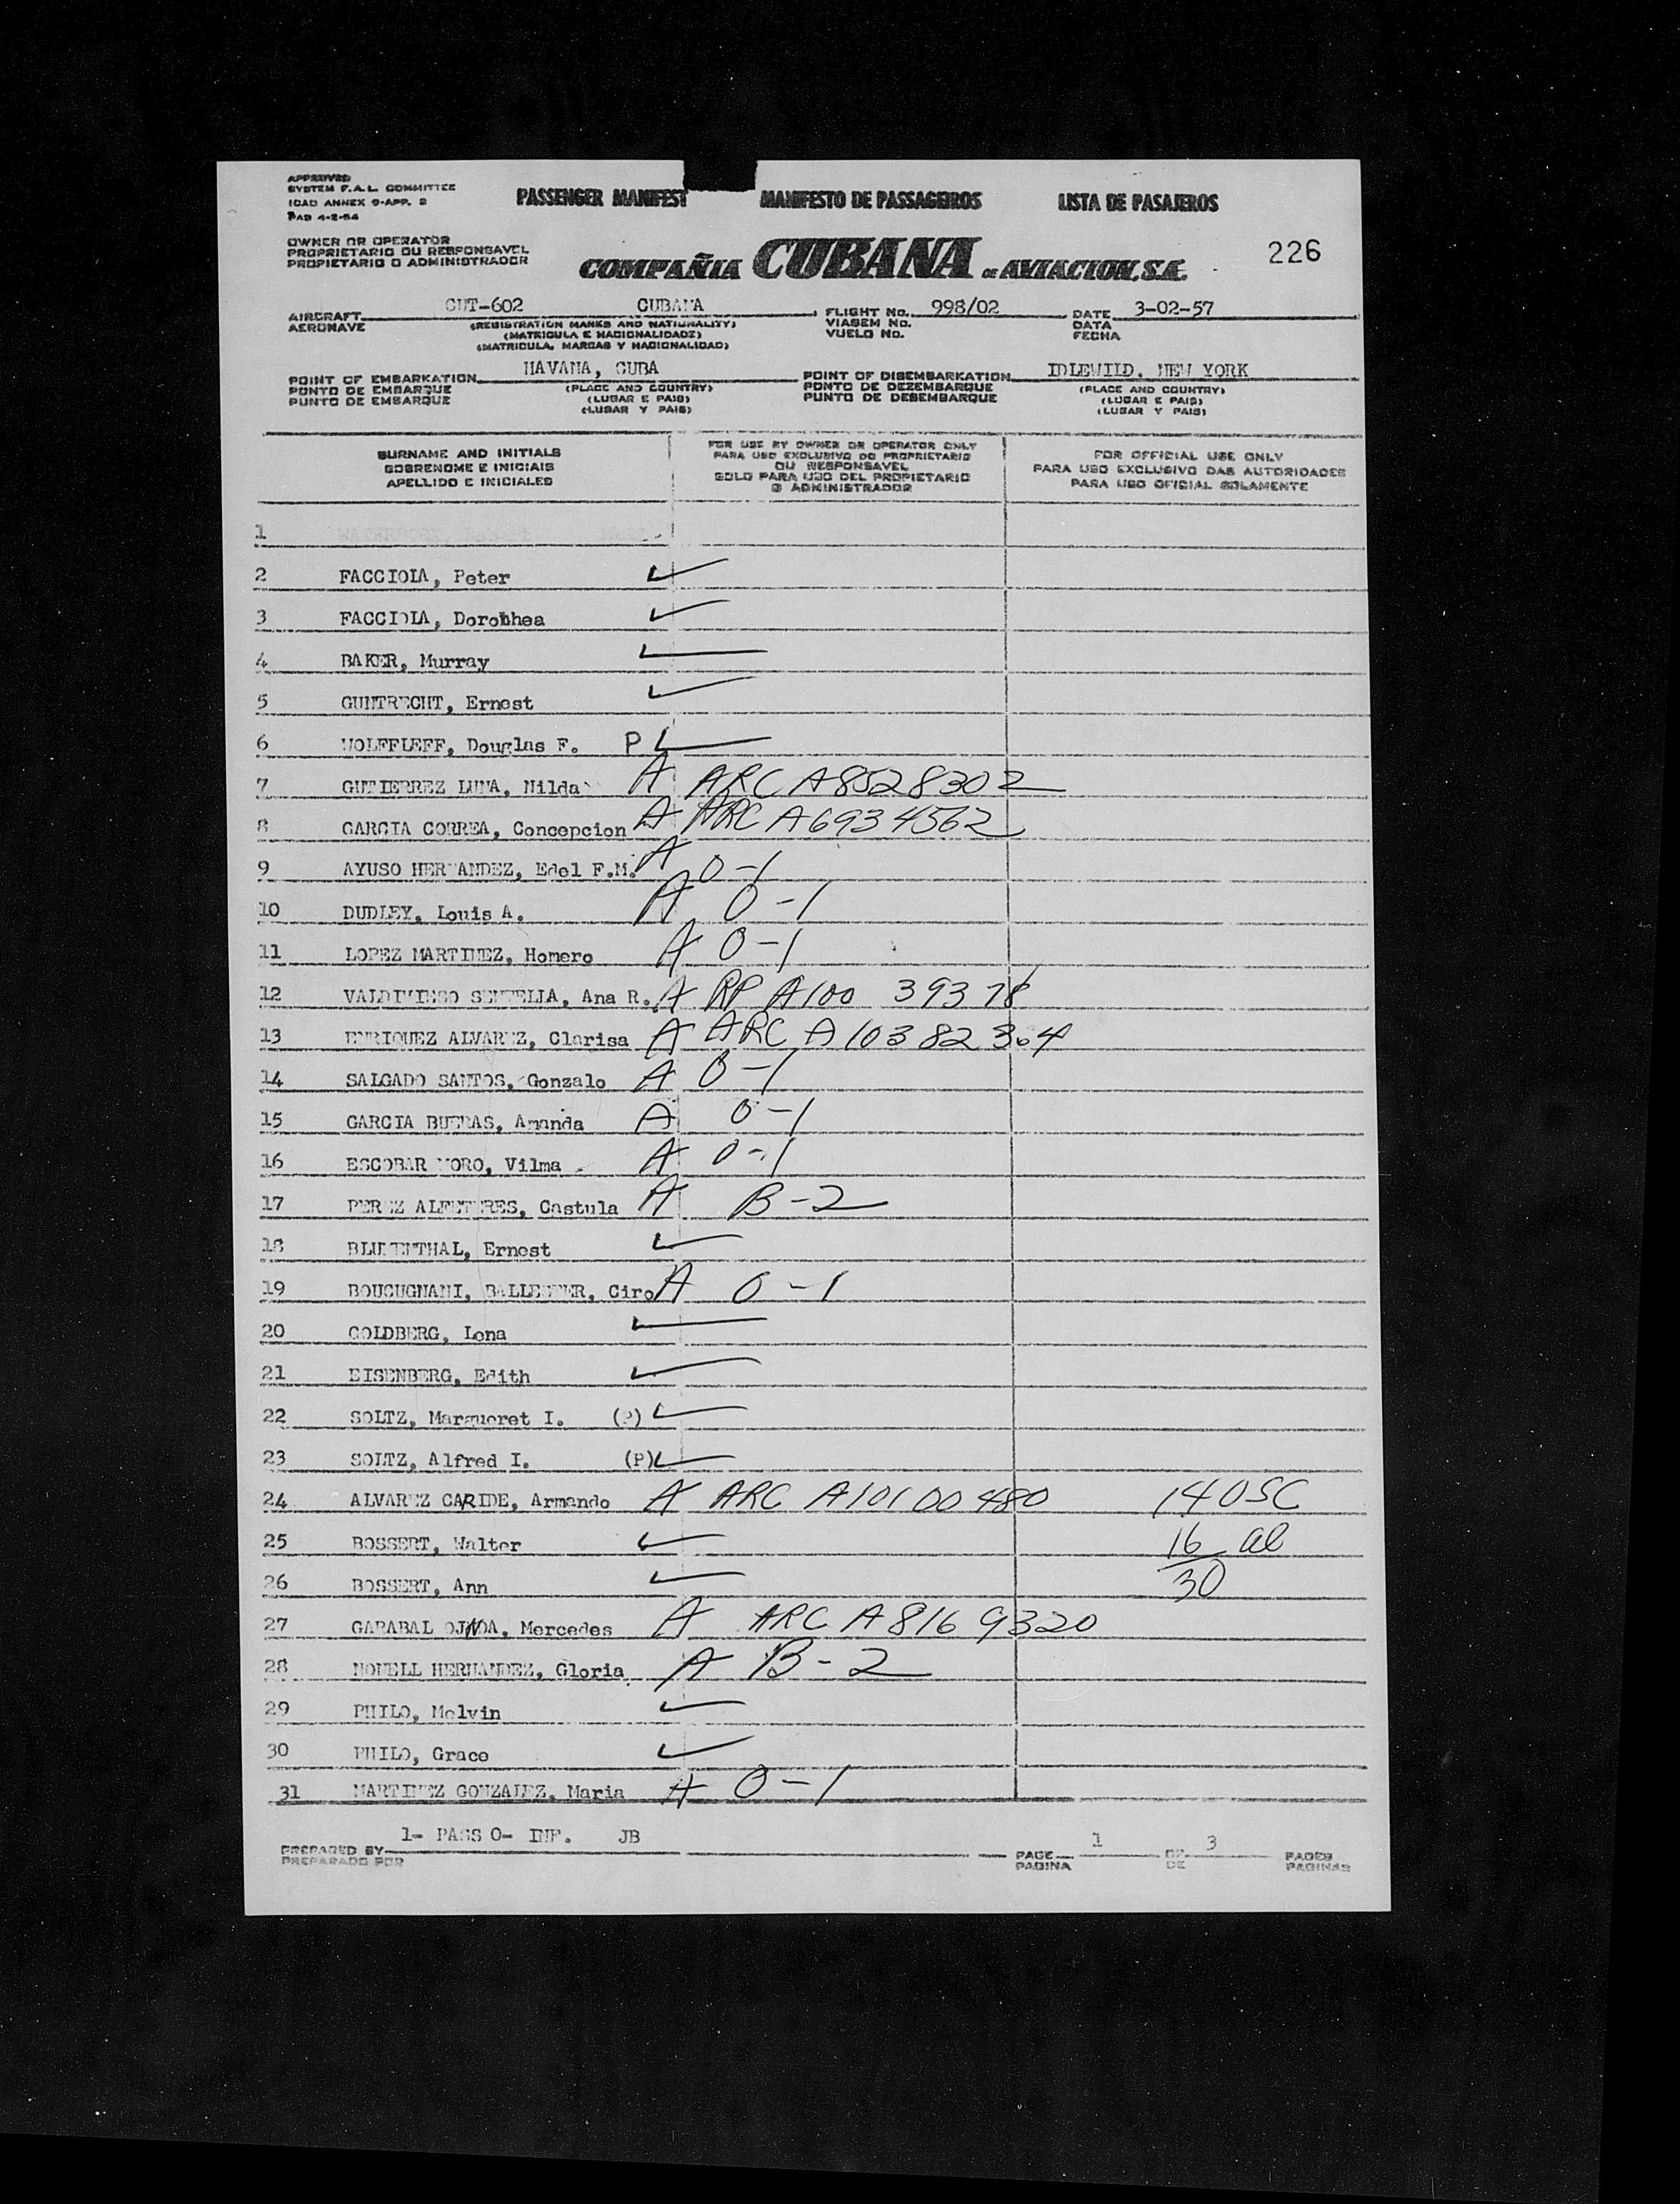 APPROVED
SYSTEM F.A.L. COMMITTEE
ICAO ANNEX 9-APP. 2
PAB 4-2-54
PASSENGER MANIFEST MANIFESTO DE PASSAGEIROS LISTA DE PASAJEROS
OWNER OR OPERATOR
PROPRIETARIO OU RESPONSAVEL
PROPIETARIO O ADMINISTRADOR
COMPAÑIA CUBANA DE AVIACION, S.A.
226
AIRCRAFT CUT-602 CUBANA FLIGHT No. 998/02 DATE 3-02-57
AERONAVE (REGISTRATION MARKS AND NATIONALITY) VIAGEM No. DATA
(MATRICULA E NACIONALIDADE) VUELO No. FECHA
(MATRICULA, MARCAS Y NACIONALIDAD)
POINT OF EMBARKATION HAVANA, CUBA POINT OF DISEMBARKATION IDLEWILD, NEW YORK
PONTO DE EMBARQUE (PLACE AND COUNTRY) PONTO DE DEZEMBARQUE (PLACE AND COUNTRY)
PUNTO DE EMBARQUE (LUGAR E PAIS) PUNTO DE DESEMBARQUE (LUGAR E PAIS)
(LUGAR Y PAIS) (LUGAR Y PAIS)
SURNAME AND INITIALS
SOBRENOME E INICIAIS
APELLIDO E INICIALES
FOR USE BY OWNER OR OPERATOR ONLY
PARA USO EXCLUSIVO DO PROPRIETARIO
OU RESPONSAVEL
SOLO PARA USO DEL PROPIETARIO
O ADMINISTRADOR
FOR OFFICIAL USE ONLY
PARA USO EXCLUSIVO DAS AUTORIDADES
PARA USO OFICIAL SOLAMENTE
1
2 FACCIOLA, Peter
3 FACCIOLA, Dorothea
4 BAKER, Murray
5 GUNTRECHT, Ernest
6 WOLFFLEFF, Douglas F. P
7 GUTIERREZ LUNA, Nilda A ARC A8528302
8 GARCIA CORREA, Concepcion A ARC A6934562
9 AYUSO HERNANDEZ, Edel F.M. A 0-1
10 DUDLEY, Louis A. A 0-1
11 LOPEZ MARTINEZ, Homero A 0-1
12 Ana R. A RP A100 39378
13 ENRIQUEZ ALVAREZ, Clarisa A ARC A10382364
14 SALGADO SANTOS, Gonzalo A 0-1
15 GARCIA Amanda A 0-1
16 ESCOBAR MORO, Vilma A 0-1
17 PEREZ Castula A B-2
18 BLUMENTHAL, Ernest
19 BOUCUGNANI, BALLESTER, Ciro A 0-1
20 GOLDBERG, Lena
21 EISENBERG, Edith
22 SOLTZ, Margueret I. (P)
23 SOLTZ, Alfred I. (P)
24 ALVAREZ CARIDE, Armando A ARC A10100480 14 OSC
25 BOSSERT, Walter 16 al
26 BOSSERT, Ann 30
27 GARABAL Mercedes A ARC A8169320
28 NOVELL HERNANDEZ, Gloria A B-2
29 PHILO, Melvin
30 PHILO, Grace
31 MARTINEZ GONZALEZ, Maria A 0-1
PREPARED BY 1- PASS 0- INF. JB PAGE 1 OF 3 PAGES
PREPARADO POR PAGINA DE PAGINAS